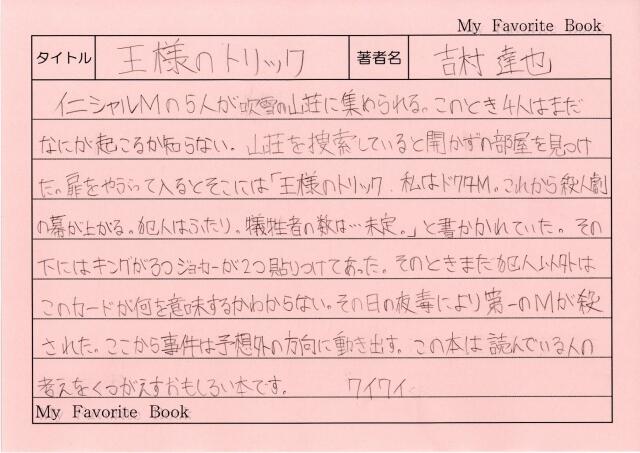 My Favorite Book
タイトル 王様のトリック 著者名 吉村達也
イニシャルMの5人が吹雪の山荘に集められる。このとき4人はまだ
なにが起こるか知らない。山荘を捜索していると開かずの部屋を見つけ
た。扉をやぶって入るとそこには「王様のトリック.私はドクタM。これから殺人劇
の幕が上がる。犯人はふたり。犠牲者の数は…未定。」と書かかれていた。その
下にはキングが3つジョーカーが2つ貼りつけてあった。そのときまだ犯人以外は
このカードが何を意味するかわからない。その日の夜毒により第一のMが殺
された。ここから事件は予想外の方向に動き出す。この本は読んでいる人の
考えをくつがえすおもしろい本です。 ワイワイ
My Favorite Book